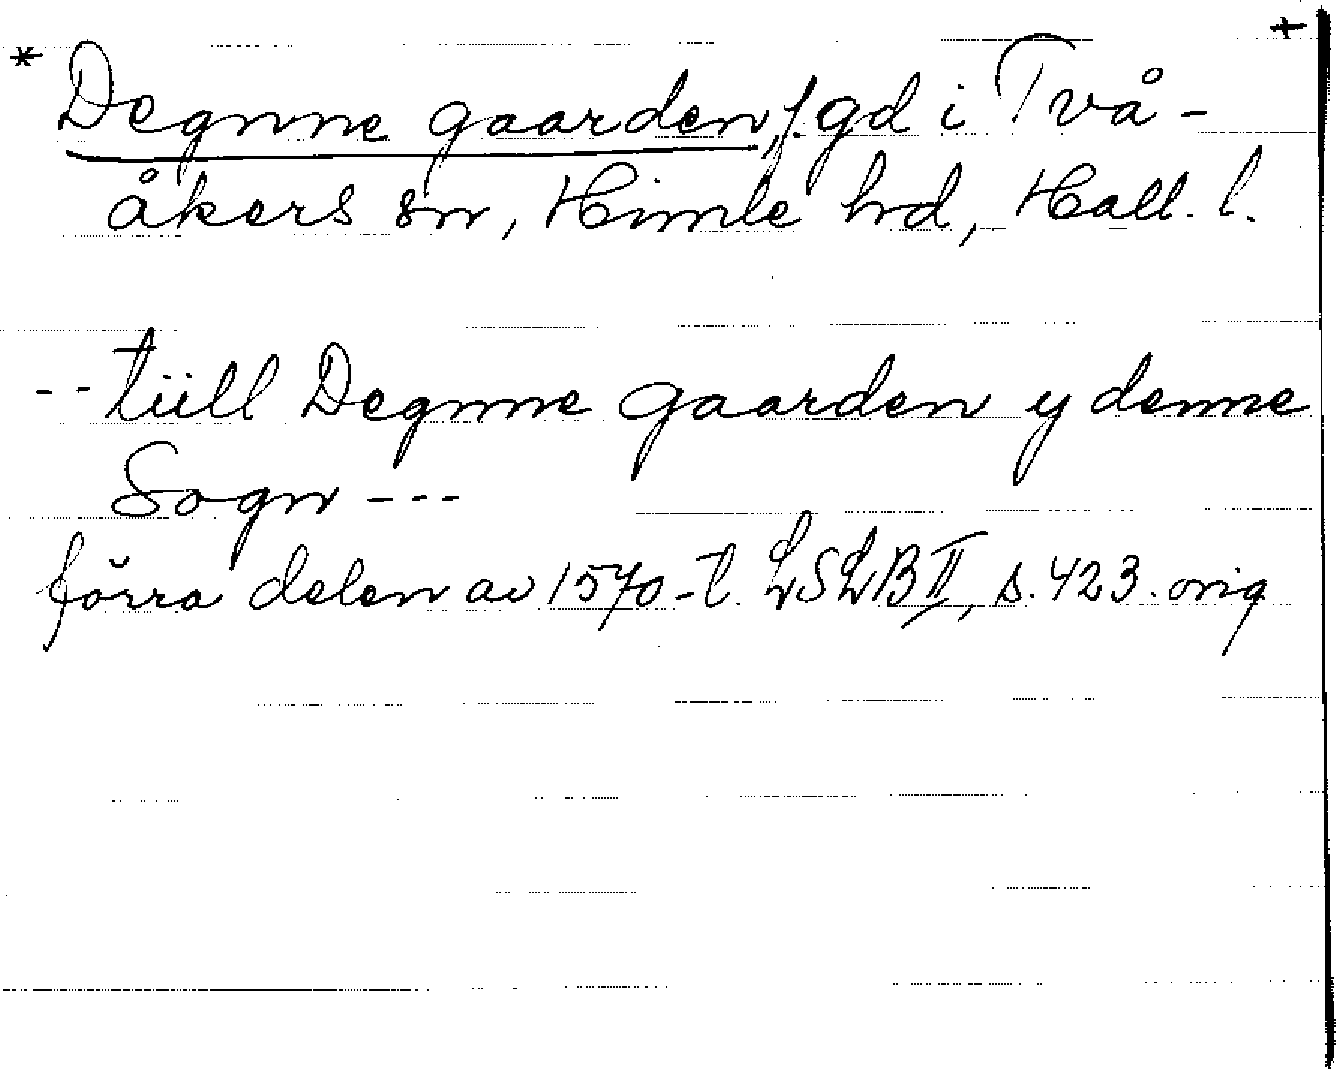 * Degnne gaarden, f. gd i Två- +
åkers sn, Himle hd, Hall. l.
-- tiill Degnne gaarden y denne
Sogn ---
förra delen av 1570-t. LSLB II, s. 423. orig